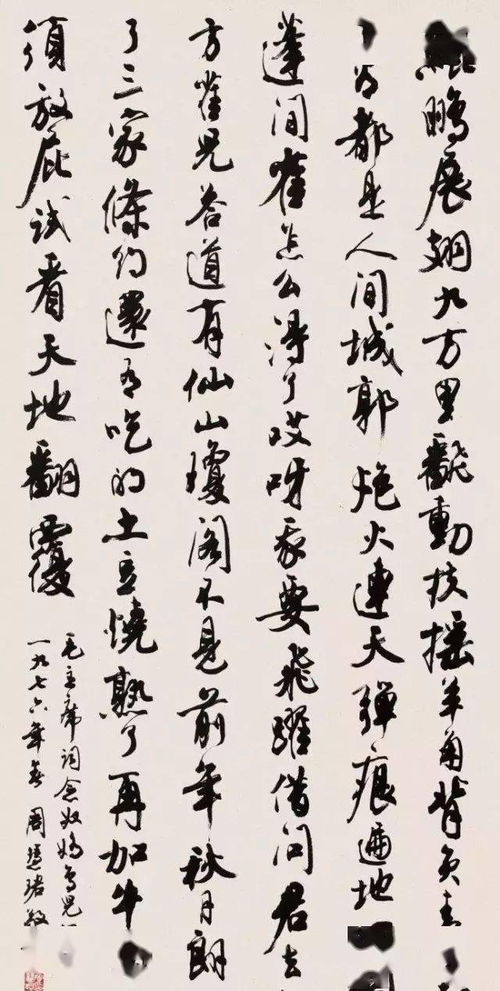 鹏展翅九万里翻動扶摇羊角背负青
都是人间城郭炮火連天彈痕遍地
蓬间雀怎么得了哎呀我要飛躍借问君去
方雀兒答道有仙山瓊阁不見前年秋月朗
了三家條约還有吃的土豆燒熟了再加牛
須放屁試看天地翻覆
毛主席词念奴嬌鸟兒
一九七六年春周慧珺敬